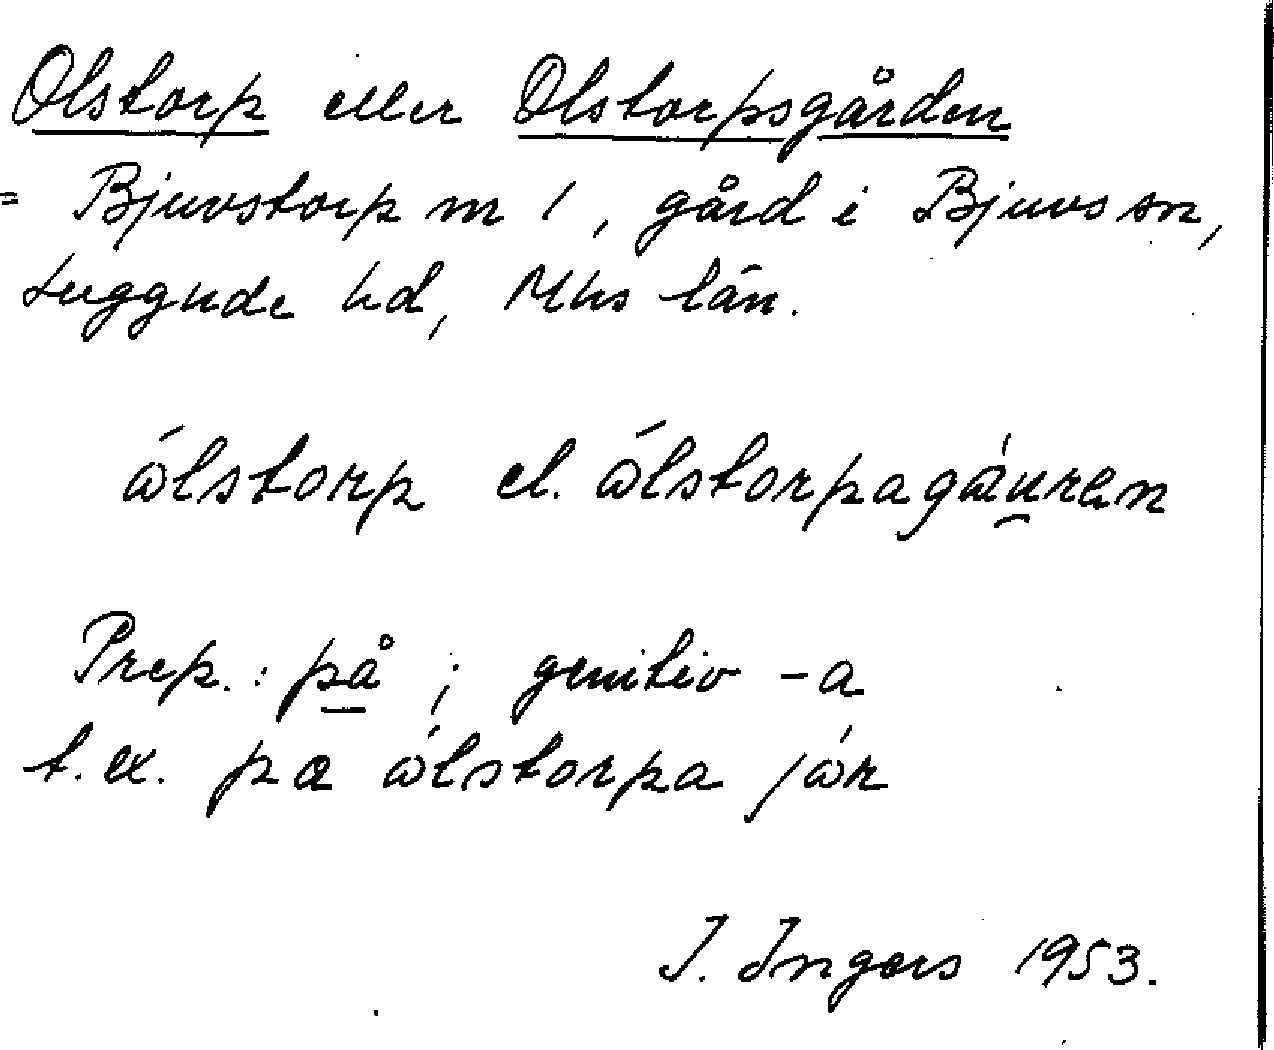 Olstorp eller Olstorpsgården
= Bjuvstorp nr 1, gård i Bjuvs sn,
Luggude hd, Mhs län.
ώlstorp el. ώlstorpagáu̯ren
Prep.: på ; genitiv -a
t.ex. pa ώlstorpa jώr
I. Ingers 1953.